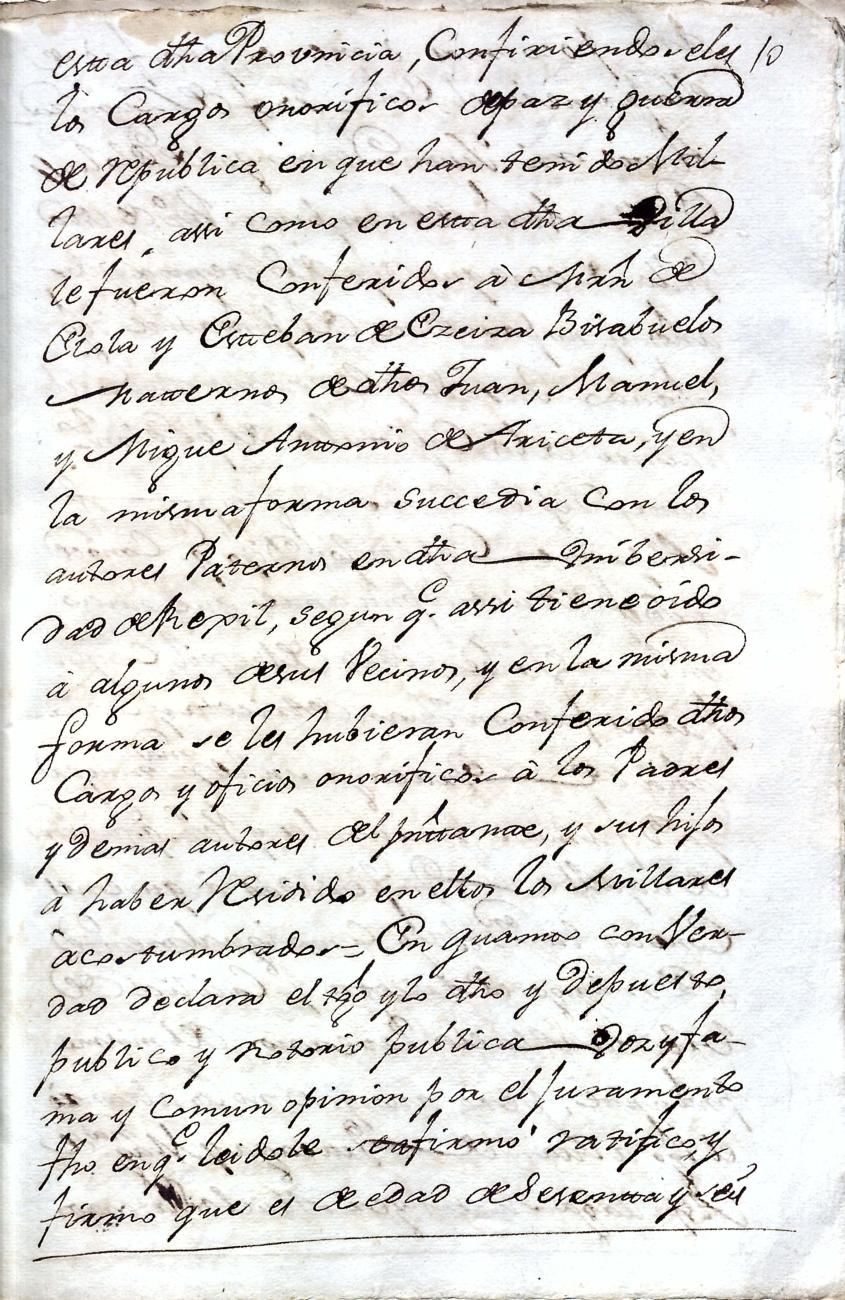 estta dha Provincia, Confiriendoseles 10
los Cargos onorificos de paz y guerra
de republica en que han tenido Mil-
lares, assi como en estta dha Villa
le fueron Conferidos à Mrn de
Elola y Esteban de Ezeiza Bisabuelos
Matternos de dhos Juan, Manuel,
y Migue Anttonio de Ariceta, y en
la misma forma succedia con los
autores Paternos en dha Vnibersi-
dad de Rexil, segun q.e assi tiene oido
à algunos de sus Vecinos, y en la misma
forma se les hubieran Conferido dhos
Cargos y oficios onorificos à los Padres
y demas autores del pnttante, y sus hijos
à haber Residido en ellos los Millares
acostumbrados = En quantto con Ver-
dad declara el tgo y lo dho y depuesto,
publico y notorio publica Voz y fa-
ma y comun opinion por el Juramento
fho en q.e leidole se afirmo ratifico, y
firmo que es de edad de Sesentta y seis